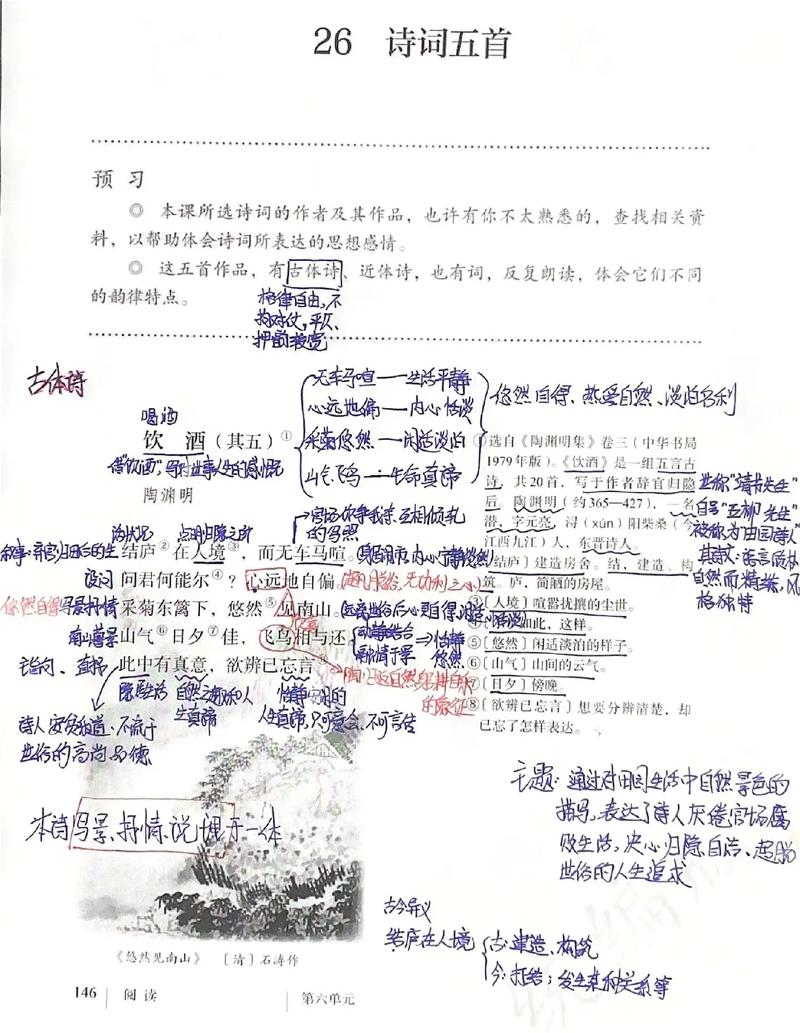 26 诗词五首
预 习
◎ 本课所选诗词的作者及其作品，也许有你不太熟悉的，查找相关资
料，以帮助体会诗词所表达的思想感情。
◎ 这五首作品，有古体诗、近体诗，也有词，反复朗读，体会它们不同
的韵律特点。
格律自由，不
拘对仗，平仄，
押韵较宽
古体诗
无车马喧——生活平静
心远地偏——内心恬淡
采菊悠然——闲适淡泊
山气飞鸟——生命真谛
悠然自得、热爱自然、淡泊名利
喝酒
饮 酒（其五）①
陶渊明
官场你争我夺、互相倾轧
的写照
点明归隐之所
结庐②在人境③，而无车马喧。
设问
问君何能尔④？心远地自偏。
悠然自得
写景抒情
采菊东篱下，悠然⑤见南山。
山气⑥日夕⑦佳，飞鸟相与还。
动静结合
融情于景
恬静
悠然
此中有真意，欲辨已忘言⑧。
隐居生活
人生真谛，只可意会、不可言传
诗人安贫乐道、不流于
世俗的高尚品德
①选自《陶渊明集》卷三（中华书局
1979年版）。《饮酒》是一组五言古
诗，共20首，写于作者辞官归隐
后。陶渊明（约365—427），一名
潜，字元亮，浔（xún）阳柴桑（今
江西九江）人，东晋诗人。
世称“靖节先生”
自号“五柳”先生”
被称为“田园诗人”
其诗文：语言质朴
自然而精炼，风
格独特
②〔结庐〕建造房舍。结，建造、构
筑。庐，简陋的房屋。
③〔人境〕喧嚣扰攘的尘世。
如此，这样。
⑤〔悠然〕闲适淡泊的样子。
⑥〔山气〕山间的云气。
⑦〔日夕〕傍晚。
⑧〔欲辨已忘言〕想要分辨清楚，却
已忘了怎样表达。
本诗写景、抒情、说理于一体
主题：通过对田园生活中自然景色的
描写，表达了诗人厌倦官场腐
败生活，决心归隐自洁、超脱
世俗的人生追求
古今异义
结庐在人境
古：建造、构筑
今：打结；发生某种关系等
《悠然见南山》〔清〕石涛作
146 阅 读 第六单元